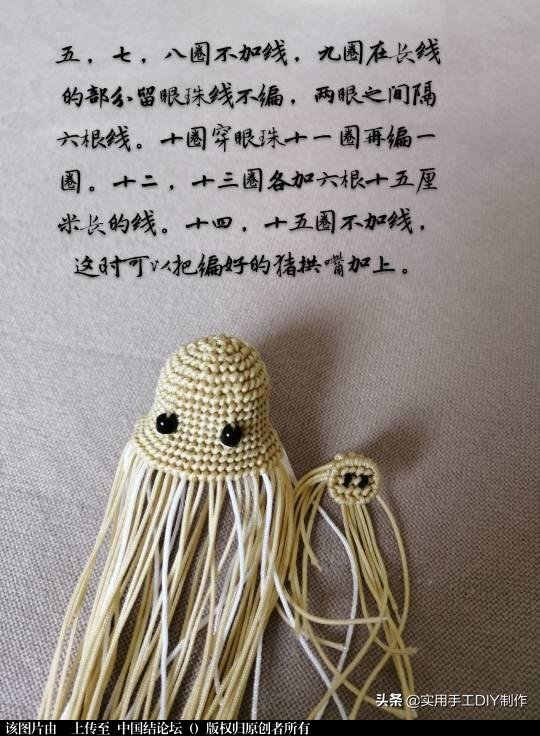 五，七，八圈不加线，九圈在长线
的部分留眼珠线不编，两眼之间隔
六根线。十圈穿眼珠十一圈再编一
圈。十二，十三圈各加六根十五厘
米长的线。十四，十五圈不加线，
这时可以把编好的猪拱嘴加上。
头条 @实用手工DIY制作
该图片由 上传至 中国结论坛 () 版权归原创者所有